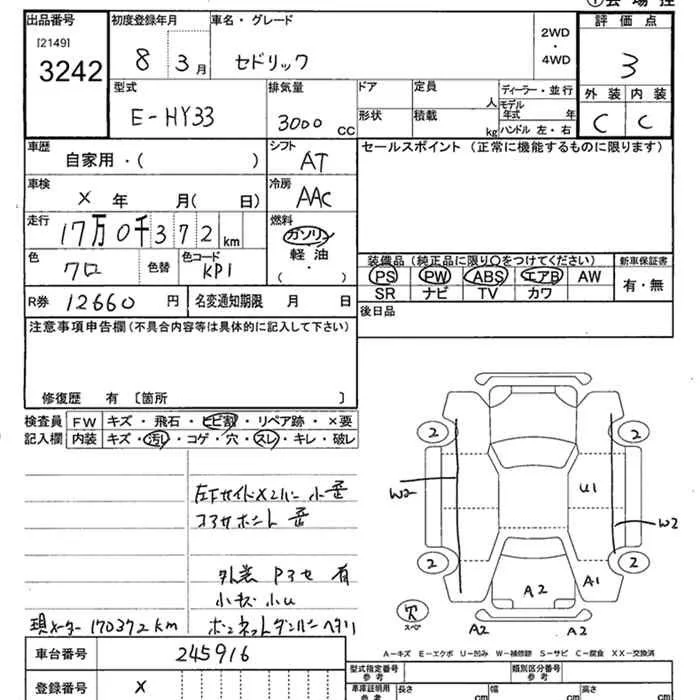 出品番号 初度登録年月 車名・グレード 評価点
[2149]
3242 8 3月 セドリック 2WD・4WD 3
型式 排気量 ドア 定員 人 ディーラー・並行 外装 内装
E-HY33 3000 CC 形状 積載 kg モデル年式 年 ハンドル 左・右 C C
車歴 自家用・( ) シフト AT セールスポイント（正常に機能するものに限ります）
車検 X 年 月( 日) 冷房 AAC
走行 17万0千372km 燃料 ガソリン
軽油
・
( )
色 クロ 色替 色コード KP1 装備品（純正品に限り○をつけてください） 新車保証書
PS PW ABS エアB AW 有・無
SR ナビ TV カワ
R券 12660円 名変通知期限 月 日 後日品
注意事項申告欄（不具合内容等は具体的に記入して下さい）
修復歴 有 〔箇所 〕
検査員 FW キズ・飛石・ヒビ割・リペア跡・×要
記入欄 内装 キズ・汚れ・コゲ・穴・スレ・キレ・破レ
2 2
W2 U1 W2
2 2
A2 A1
A2 A2
穴
スペア
外装 有
小キズ 小U
現メーター 170372km
A-キズ E-エクボ U-凹み W-補修跡 S-サビ C-腐食 XX-交換済
車台番号 245916
登録番号 X
型式指定番号 参考 類別区分番号 参考
車庫証明用 参考 長さ cm 幅 cm 高さ cm